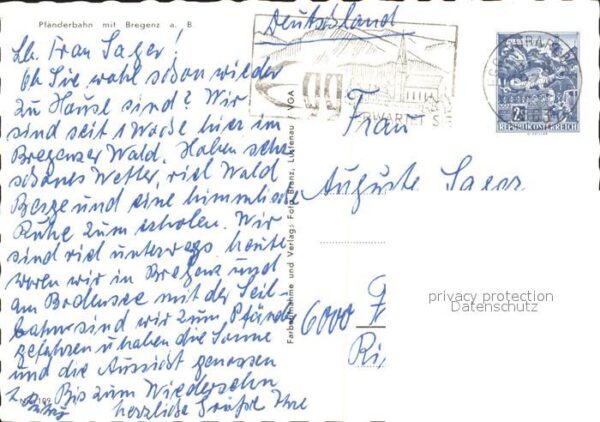 Pfänderbahn mit Bregenz a. B.
Lb. Frau Sager!
Ob Sie wohl schon wieder
zu Hause sind? Wir
sind seit 1 Woche hier im
Bregenzer Wald. Haben sehr
schönes Wetter, viel Wald
Berge und eine himmlische
Ruhe zum erholen. Wir
sind viel unterwegs heute
waren wir in Bregenz und
am Bodensee mit der Seil-
bahn sind wir zum Pfänder
gefahren u haben die Sonne
und die Aussicht genossen
Bis zum Wiedersehn
herzliche Grüße Ihre
Farbaufnahme und Verlag: Foto Branz, Lustenau / VGA
Deutschland
EGG
ERWARTET SIE
2 S
REPUBLIK ÖSTERREICH
Frau
Auguste Sager
6000 F
Ri
privacy protection
Datenschutz